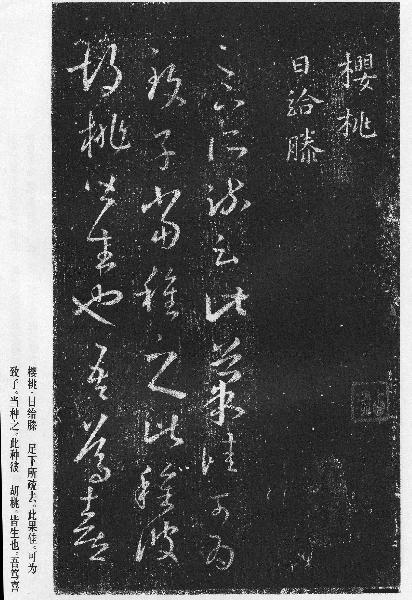 櫻桃
日給滕
足下所疏云此菓佳可為
致子當種之此種彼
胡桃皆生也吾篤喜
樱桃。日给滕 足下所疏去。此果佳。可为
致子。当种之。此种彼 胡桃。皆生也。吾笃喜